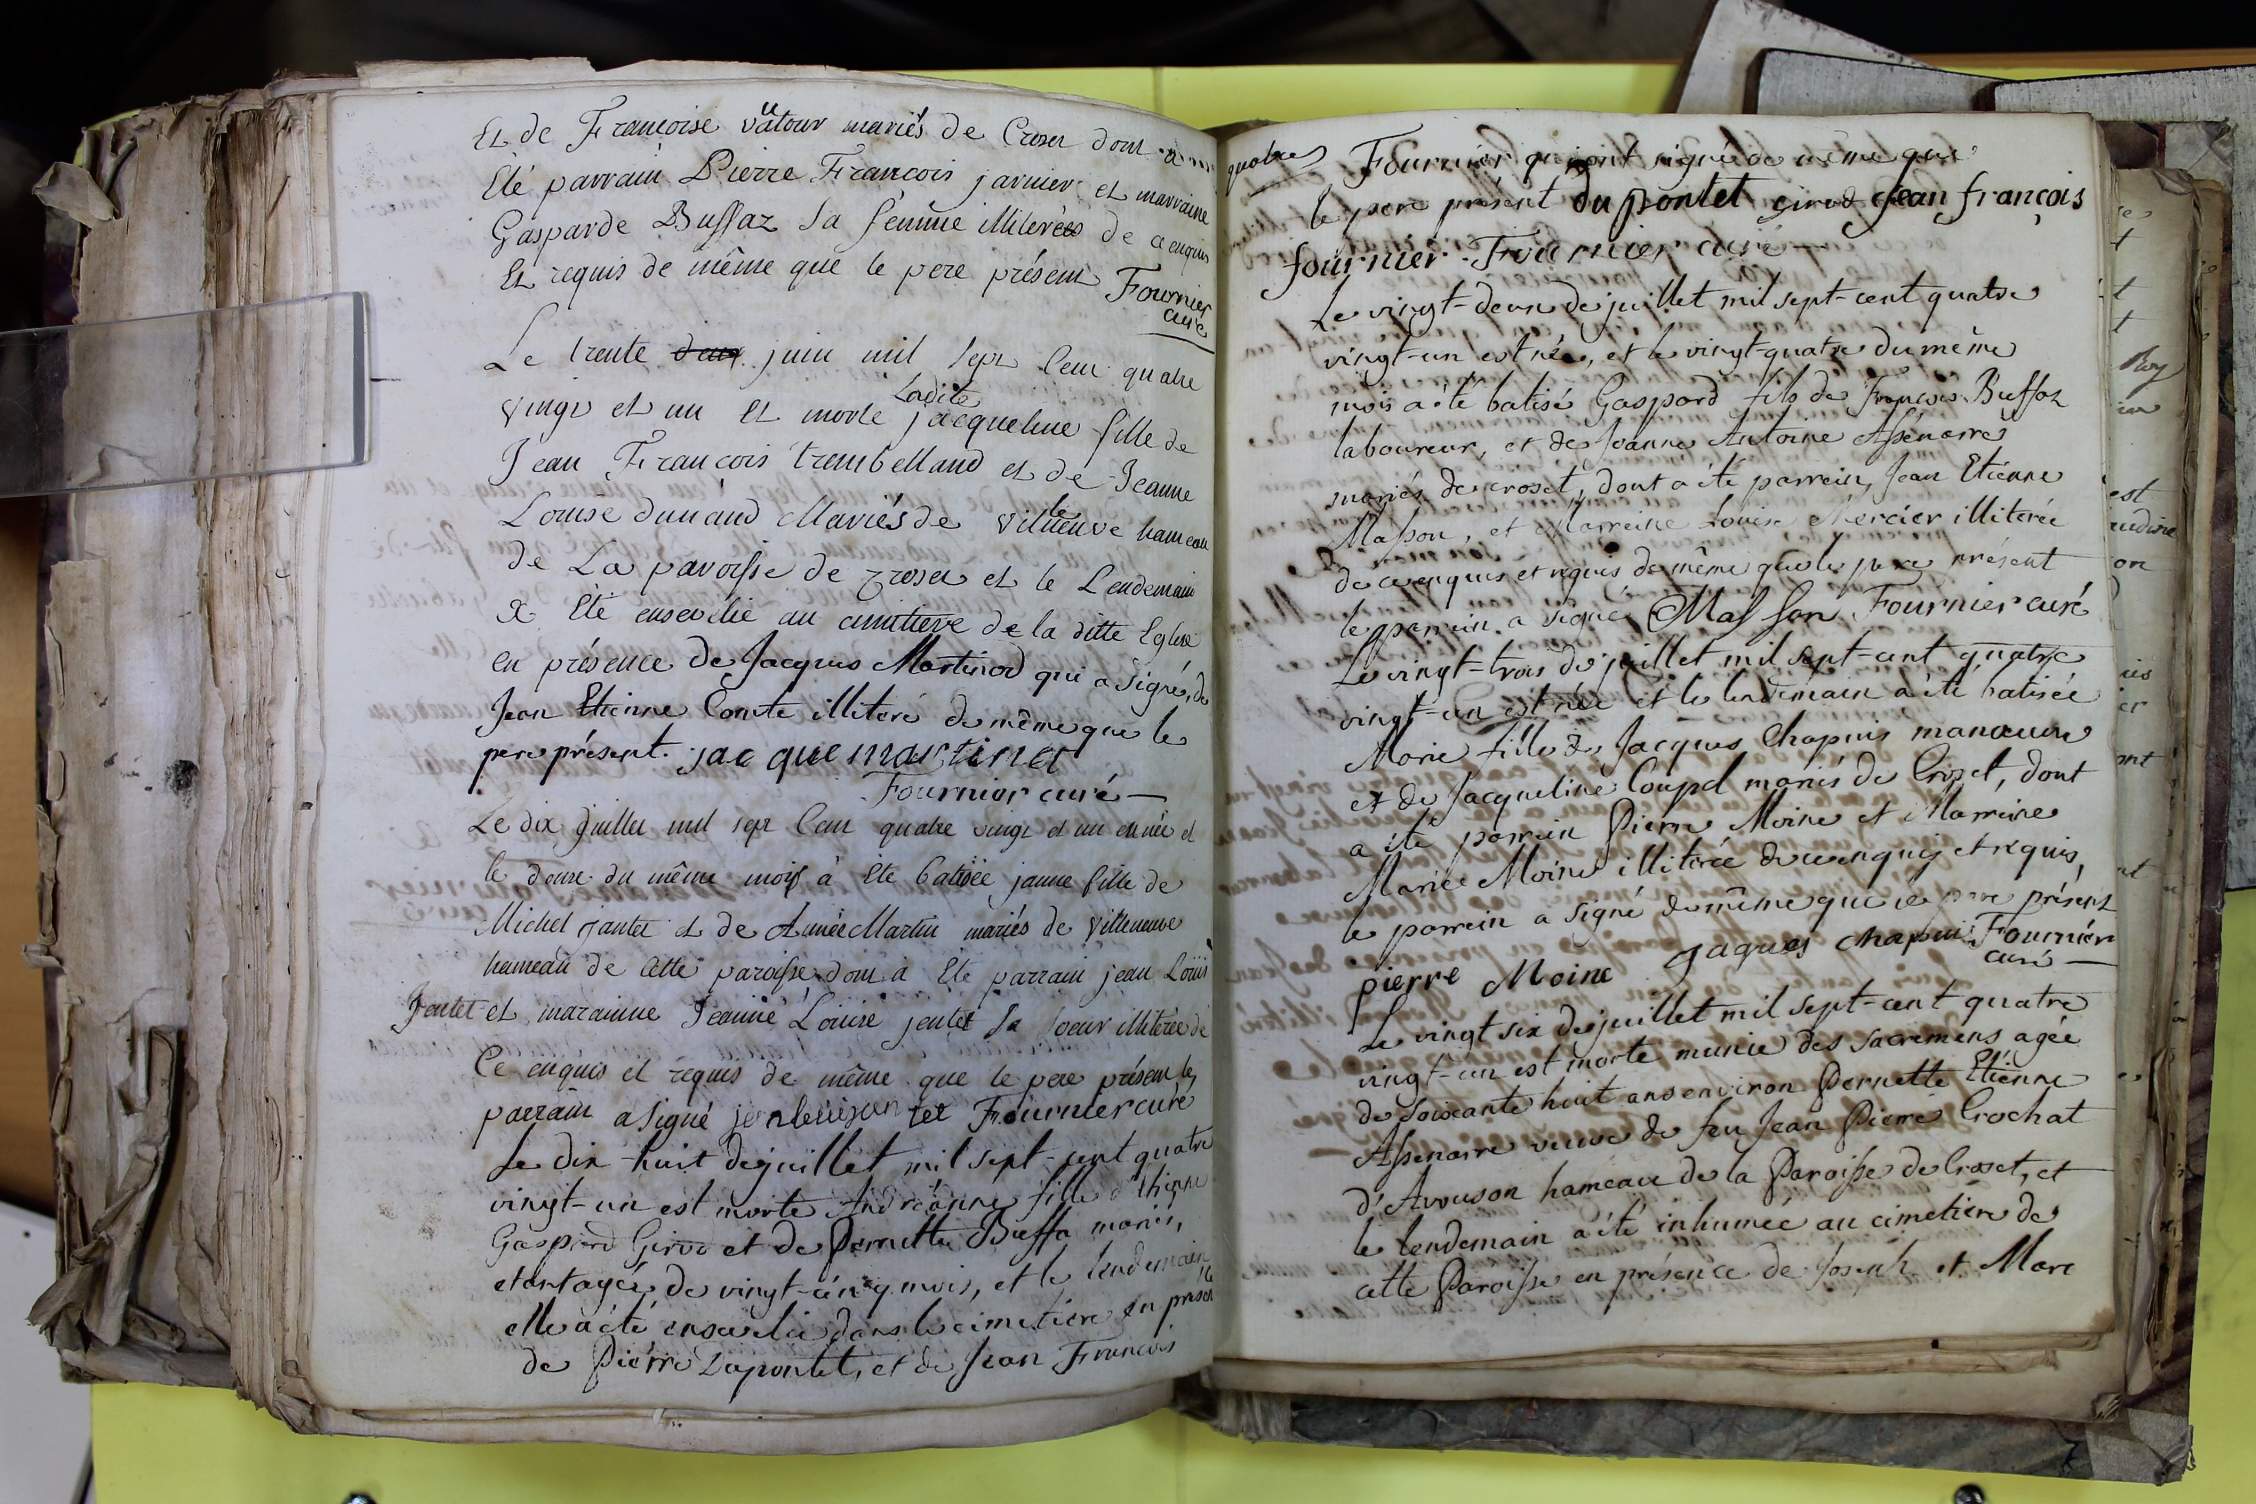 Et de Francoise vuatour mariés de Croset dont a
Été parrain Pierre Francois jarnier et marraine
Gasparde Buffaz sa fémme illiterées de ce enquis
Et requis de même que le pere présent Fournier
curé
Le trente juin mil sept Cent quatre
vingt et un Et morte ladite jacqueline fille de
Jean Francois trembelland et de Jeanne
Louise dunand Mariés de villeneuve hameau
de La paroisse de Croset et le Lendemain
a Eté ensevelie au cimitiere de la ditte Eglise
en présence de Jacques Martinod qui a signé, de
Jean Etienne Comte illiteré de même que le
pere présent. jac que martinod
Fournier curé
Le dix juillet mil sept Cent quatre vingt et un en née et
le douze du même mois à Eté batisée janne fille de
Michel jantet et de Aimée Martin mariés de villeneuve
hameau de Cette paroisse dont à Eté parrain jean Loüis
Jentet et maraine Jeanne Louise jentet sa soeur illiterée de
Ce enquis et requis de même que le pere présent le
parrain a signé jenlouijantet Fournier curé
Le dix-huit de juillet mil sept-cent quatre
vingt-un est morte Andréanne fille d'Ethienne
Gaspard Girod et de Pernette Buffa mariés,
etant agée de vingt-cinq mois, et le lendemain
elle a été ensevelie dans le cimetiere en presence
de Piérre Dupontet, et de Jean François
quatre
Fournier qui ont signé de même que
le pere présent du pontet girod jean françois
fournier Fournier curé
Le vingt-deux de juillet mil sept-cent quatre
vingt-un est née, et le vingt-quatre du même
mois a été batisé Gaspard fils de François Buffaz
laboureur, et de Jeanne Antoine Assenarre
mariés de croset, dont a été parrein Jean Etienne
Masson, et Marreine Louise Mercier illiterée
de ce enquis et requis de même que le pere présent
le parrein a signé Masson Fournier curé
Le vingt-trois de juillet mil sept-cent quatre
vingt-un est née et le lendemain a été batisée
Marie fille de Jacques Chapuis manœuvre
et de Jacqueline Coupel mariés de Croset, dont
a été parrein Pierre Moine et Marreine
Mariée Moine illiterée de ce enquis et requis,
le parrein a signé de même que le pere présent
pierre Moine jaques chapuis Fournier
curé
Le vingt six de juillet mil sept-cent quatre
vingt-un est morte munie des sacremens agée
de soixante huit ans environ Pernette Etiénne
Assenarre veuve de feu Jean Pierre Crochat
d'Avouson hameau de la Paroisse de Croset, et
le lendemain a été inhumée au cimetiere de
cette Paroisse en présence de Joseph et Marc